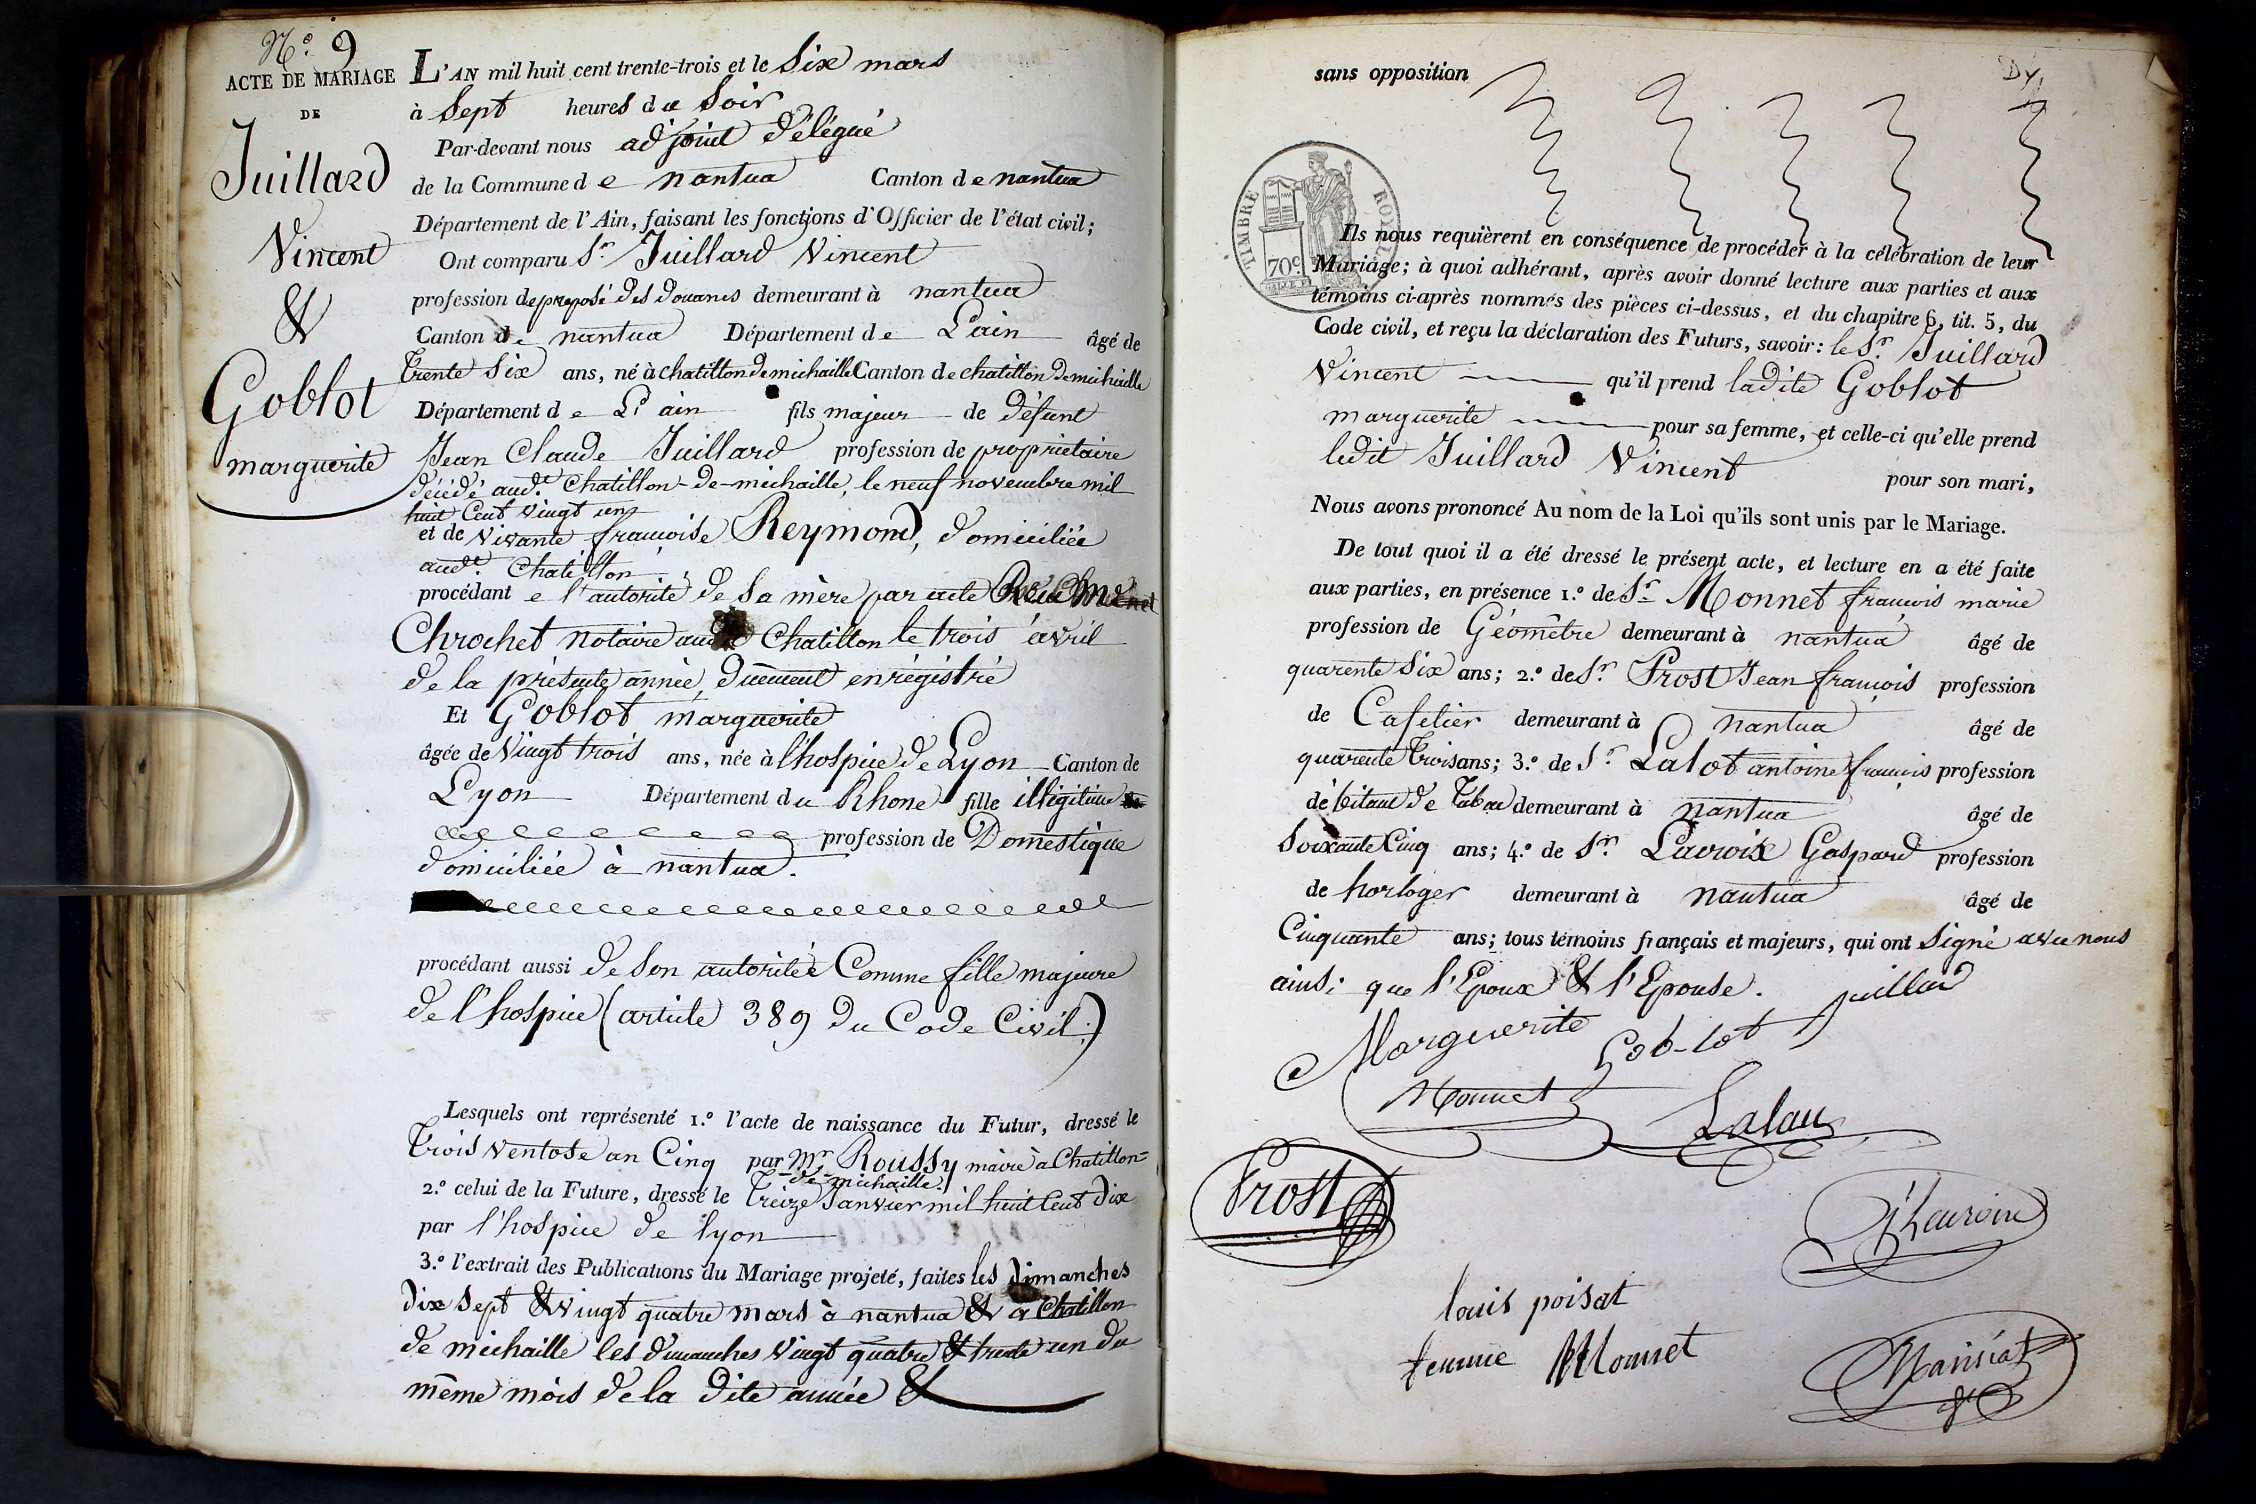 N.º 9
ACTE DE MARIAGE
DE
Juillard
Vincent
&
Goblot
marguerite
L'AN mil huit cent trente-trois et le Six mars
à Sept heures du Soir
Par-devant nous adjoint Délégué
de la Commune de nantua Canton de nantua
Département de l'Ain, faisant les fonctions d'Officier de l'état civil;
Ont comparu Sr. Juillard Vincent
profession de préposé des Douanes demeurant à nantua
Canton de nantua Département de L'ain âgé de
Trente Six ans, né à chatillon de michaille Canton de chatillon de michaille
Département de L'ain fils majeur de défunt
Jean Claude Juillard profession de propriétaire
décédé aud.t Chatillon-de-michaille, le neuf novembre mil
huit Cent vingt un
et de vivante françoise Reymond, domiciliée
aud.t Chatillon
procédant de l'autorité de Sa mère par acte Reçu Me
Chrochet notaire Chatillon le trois avril
de la présente année, duement enrégistré
Et Goblot marguerite
âgée de Vingt trois ans, née à l'hospice de Lyon Canton de
Lyon Département du Rhone fille illigitime
profession de Domestique
domiciliée à nantua.
procédant aussi de Son autoritée Comme fille majeure
de l'hospice (article 389 du Code Civil;)
Lesquels ont représenté 1.º l'acte de naissance du Futur, dressé le
Trois ventose an Cinq par Mr Roussy maire à Chatillon=
de=michaille.
2.º celui de la Future, dressé le Treize Janvier mil huit Cent Dix
par l'hospice de lyon
3.º l'extrait des Publications du Mariage projeté, faites les dimanches
dix Sept & vingt quatre mars à nantua & a Chatillon
de michaille les dimanches vingt quatre & trente un du
même mois de la dite année &
sans opposition
TIMBRE ROYAL
70c.
Ils nous requièrent en conséquence de procéder à la célébration de leur
Mariage; à quoi adhérant, après avoir donné lecture aux parties et aux
témoins ci-après nommés des pièces ci-dessus, et du chapitre 6, tit. 5, du
Code civil, et reçu la déclaration des Futurs, savoir: le Sr. Juillard
Vincent qu'il prend ladite Goblot
marguerite pour sa femme, et celle-ci qu'elle prend
ledit Juillard Vincent pour son mari,
Nous avons prononcé Au nom de la Loi qu'ils sont unis par le Mariage.
De tout quoi il a été dressé le présent acte, et lecture en a été faite
aux parties, en présence 1.º de Sr Monnet françois marie
profession de Géomêtre demeurant à nantua âgé de
quarente Six ans; 2.º de Sr. Prost Jean françois profession
de Cafetier demeurant à nantua âgé de
quarente trois ans; 3.º de Sr Lalot antoine françois profession
débitant de Tabac demeurant à nantua âgé de
Soixante Cinq ans; 4.º de Sr. Lacroix Gaspard profession
de horloger demeurant à nantua âgé de
Cinquante ans; tous témoins français et majeurs, qui ont Signé avec nous
ainsi que l'Epoux & l'Epouse. juillard
Marguerite Gob-lot
Monnet
Lalau
Prost
louis poisat
femme Monnet